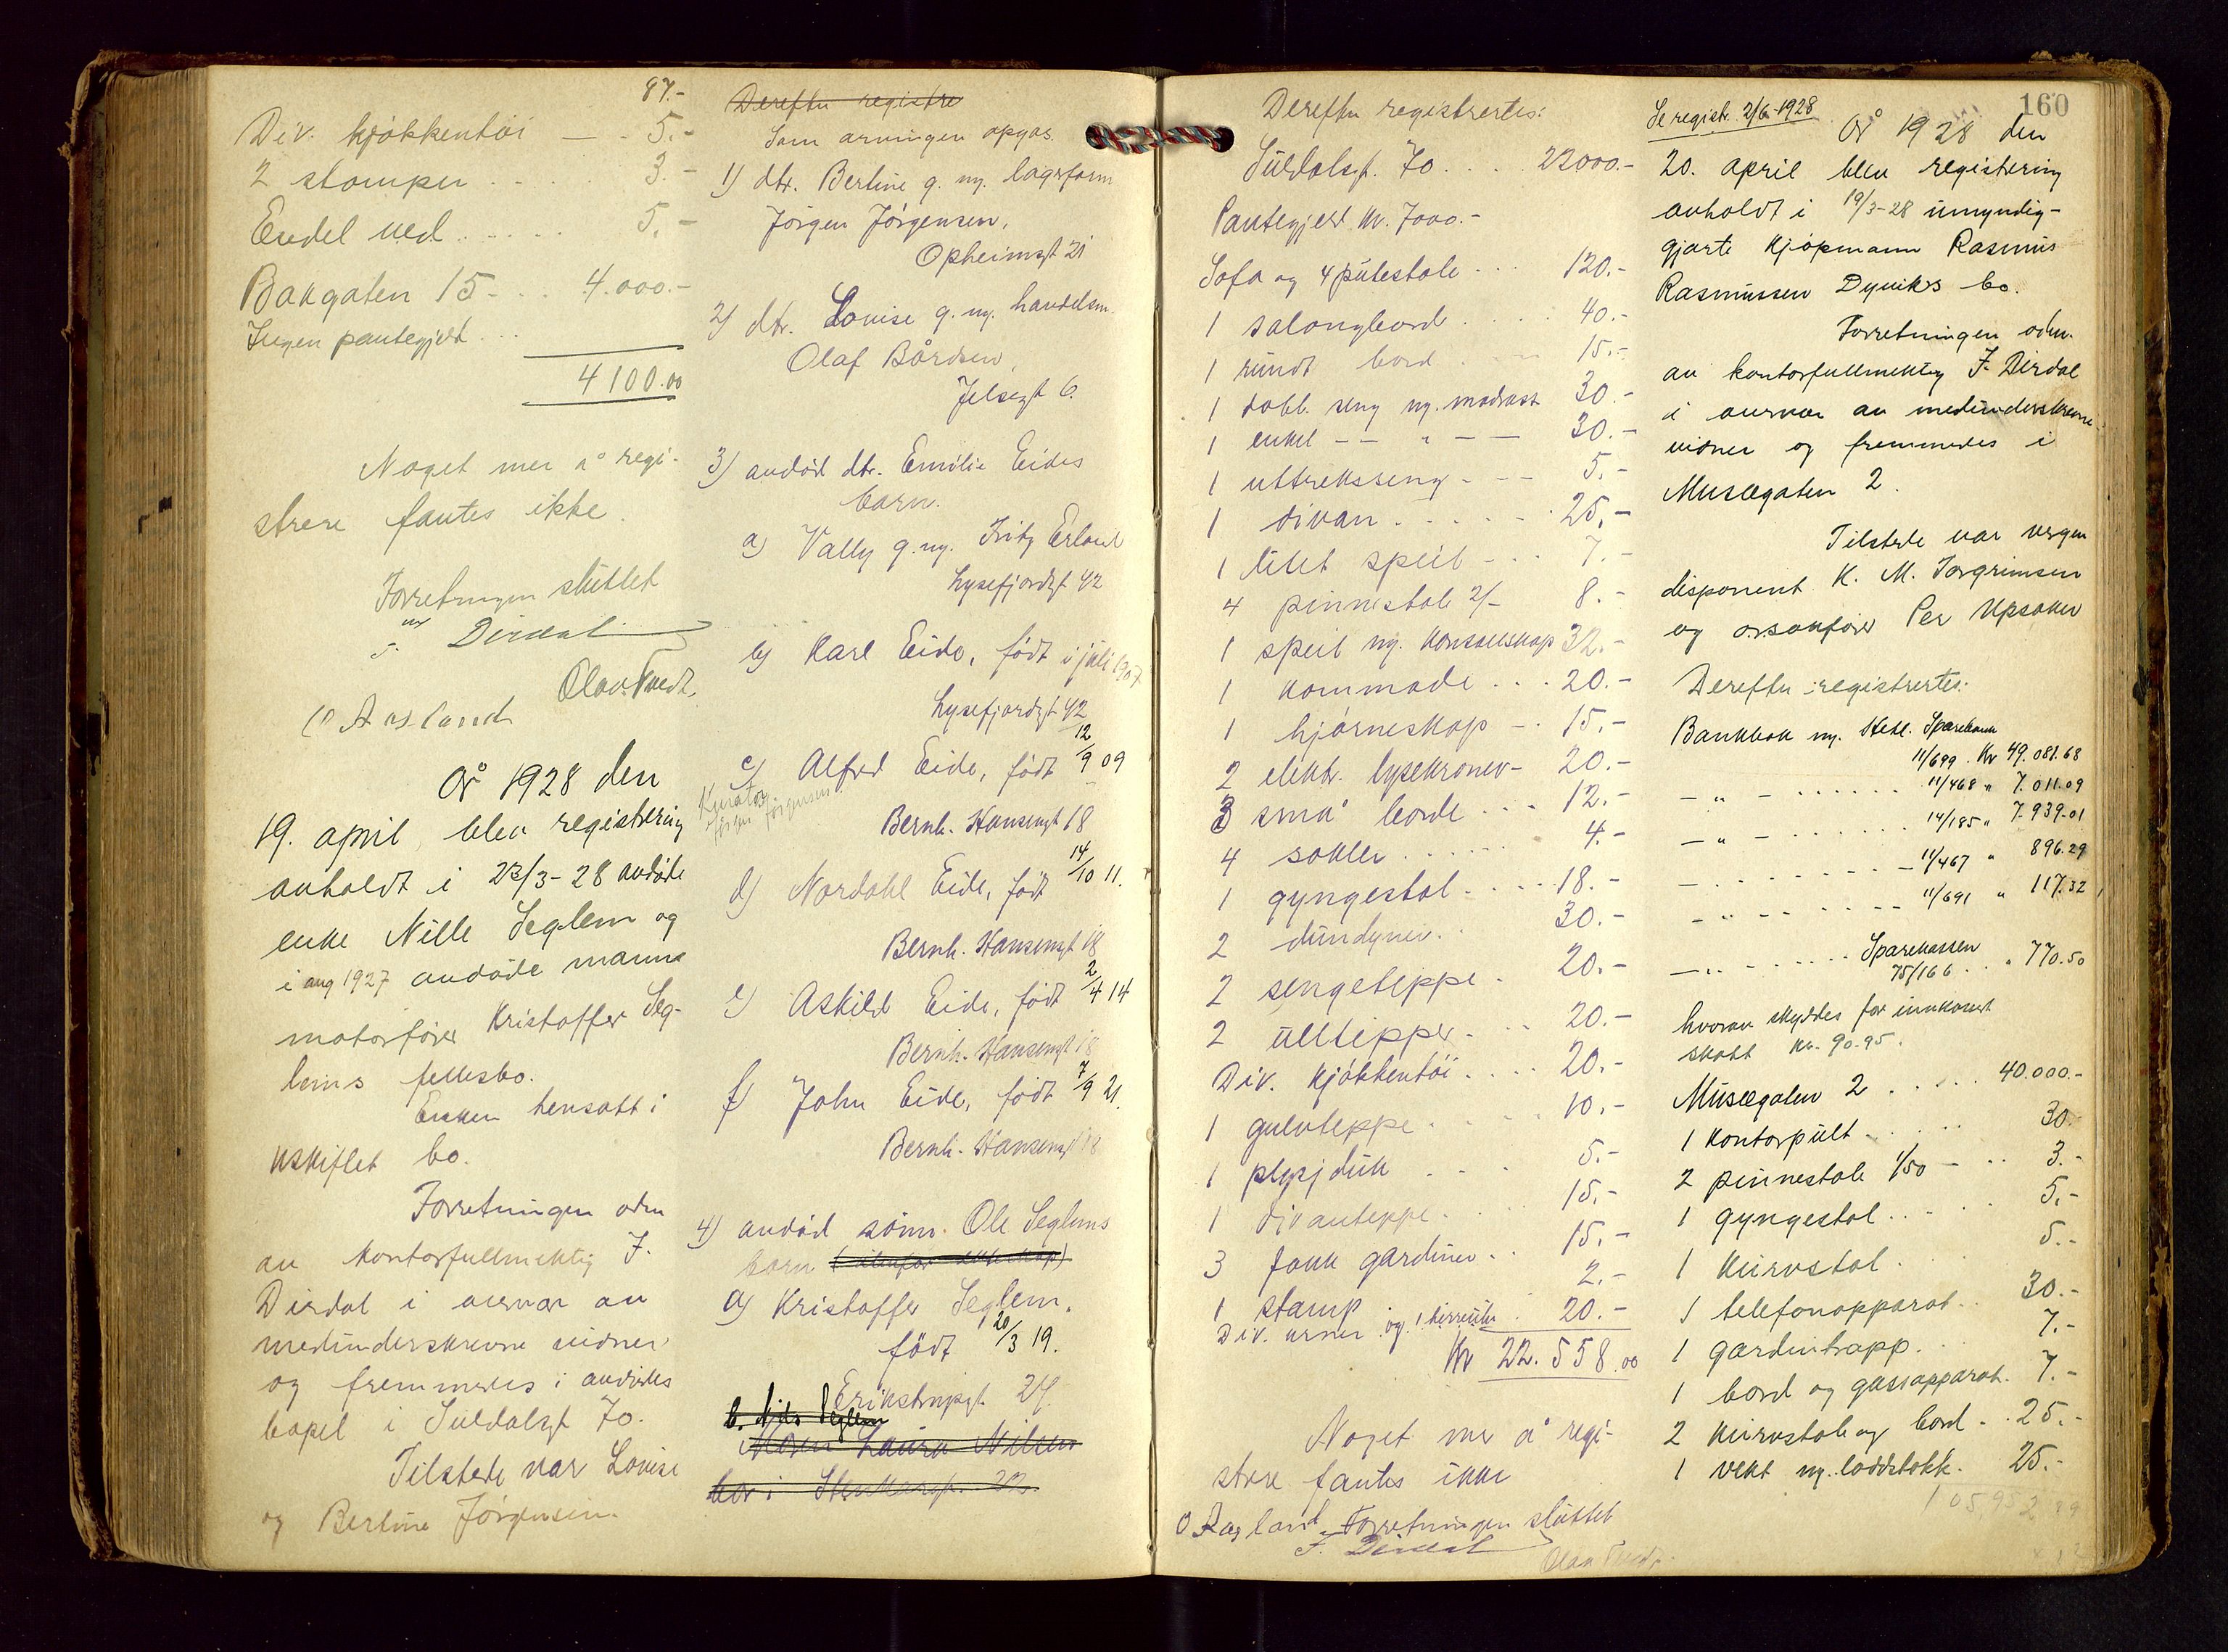 87.-
Div. kjøkkentøi — - 5.-
2 stamper . . . 3.-
Endel ved . . . . . 5.-
Bakgaten 15 - . . 4.000.-
Ingen pantegjeld . . .
4100.00
Noget mer å regi-
strere fantes ikke.
Forretningen sluttet
Dirdal
Olav Tvedt.
O Aasland
År 1928 den
19. april, blev registrering
avholdt i 23/3-28 avdøde
enke Nille Seglem og
i aug 1927 avdøde manns
motorfører Kristoffer Seg-
lems fellesbo.
Enken hensatt i
uskiftet bo.
Forretningen adm
av kontorfullmektig F.
Dirdal i overvær av
medunderskrevne vidner
og fremmedes i avdødes
bopel i Suldalsgt 70.
Tilstede var Lovise
og Bertine Jørgensen.
Derefter registre
Som arvingen opgas.
1) dtr. Bertine g. m. lagerform
Jørgen Jørgensen,
Opheimsgt 21
2) dtr. Lovise g. m. handelsm.
Olaf Bårdsen,
Jelsegt 6.
3) avdød dtr. Emilie Eides
barn.
a) Vally g. m. Fritz Erland
Lysefjordgt 42
b) Karl Eide, født i juli 1907
Lysefjordgt 42
c) Alfred Eide, født 12/9 09
Kurator
Jørgen Jørgensen
Bernh. Hansensgt 18
d) Nordahl Eide, født 14/10 11.
Bernh. Hansensgt 18
e) Askild Eide, født 2/4 14
Bernh. Hansensgt 18
f) John Eide, født 7/9 21.
Bernh. Hansensgt 18
4) avdød sønn. Ole Seglems
barn (utenfor ekteskap)
a) Kristoffer Seglem.
født 20/3 19.
Erikstrupgt. 24
b. Nils Seglem
Moren Laura Nilsen
bor i Stenkargt. 22.
Derefter registrertes:
Suldalsgt. 70. . . . 22000.-
Pantegjeld kr. 7000.-
Sofa og 4 putestole . . . 120.-
1 salongbord . . . . 40.-
1 rundt bord . . . 15.-
1 dobb. seng m. madrass 30.-
1 enkel — — " — — 30.-
1 uttreksseng - - - 5.-
1 divan . . . . . . 25.-
1 litet speil - . . 7.-
4 pinnestole 2/- 8.-
1 speil m. konsollskap 32.-
1 kommode . . . 20.-
1 hjørneskap - . 15.-
2 elektr. lysekroner - 20.-
3 små borde . . . 12.-
4 sokler . . . . . . 4.-
1 gyngestol . . . . 18.-
2 dundyner. . 30.-
2 sengeteppe . 20.-
2 ullteppe . . . 20.-
Div. kjøkkentøi . . . . 20.-
1 gulvteppe . . . . 10.-
1 plysjduk . . . . 5.-
1 divanteppe. . . . 15.-
3 fakk gardiner . . 15.-
1 stamp . . . 2.-
Div. urner og 1 . 20.-
Kr 22.558.00
Noget mer å regi-
strere fantes ikke
O Aasland. Forretningen sluttet
F. Dirdal
Olav Tvedt.
160
Se registr. 2/6-1928
År 1928 den
20. april blev registrering
avholdt i 19/3-28 umyndig-
gjorte kjøpmann Rasmus
Rasmussen Dyviks bo.
Forretningen adm.
av kontorfullmektig F. Dirdal
i overvær av medunderskrevne
vidner og fremmedes i
Musægaten 2.
Tilstede var vergen
disponent K. M. Torgrimsen
og o.r.sakfører Per Upsaker
Derefter registrertes.
Bankbok m. Hetl. Sparebank
11/699 . Kr 49.081.68
— " — . . . . . . 11/468 " 7.011.09
— " . . . . . . . 14/185 " 7.939.01
— . . . . . . . . — 11/467 " 896.29
— " — — — — — — 11/691 " 117.32
— " — . . . . . . Sparekassen
75/166 . . . " 770.50
hvorav skyldes for innkassert
skatt kr. 90.95.
Musægaten 2 . . . . . 40.000.-
1 kontorpult . . . . . 30.
2 pinnestole 1/50 — . . 3.-
1 gyngestol . . . . . 5.-
1 kurvstol . . . 5.-
1 telefonapparat . . 30.-
1 gardintrapp. . 7.-
1 bord og gassapparat. 7.-
2 kurvstole og bord - . 25.-
1 vekt m. loddstokk. 25.-
105952.89